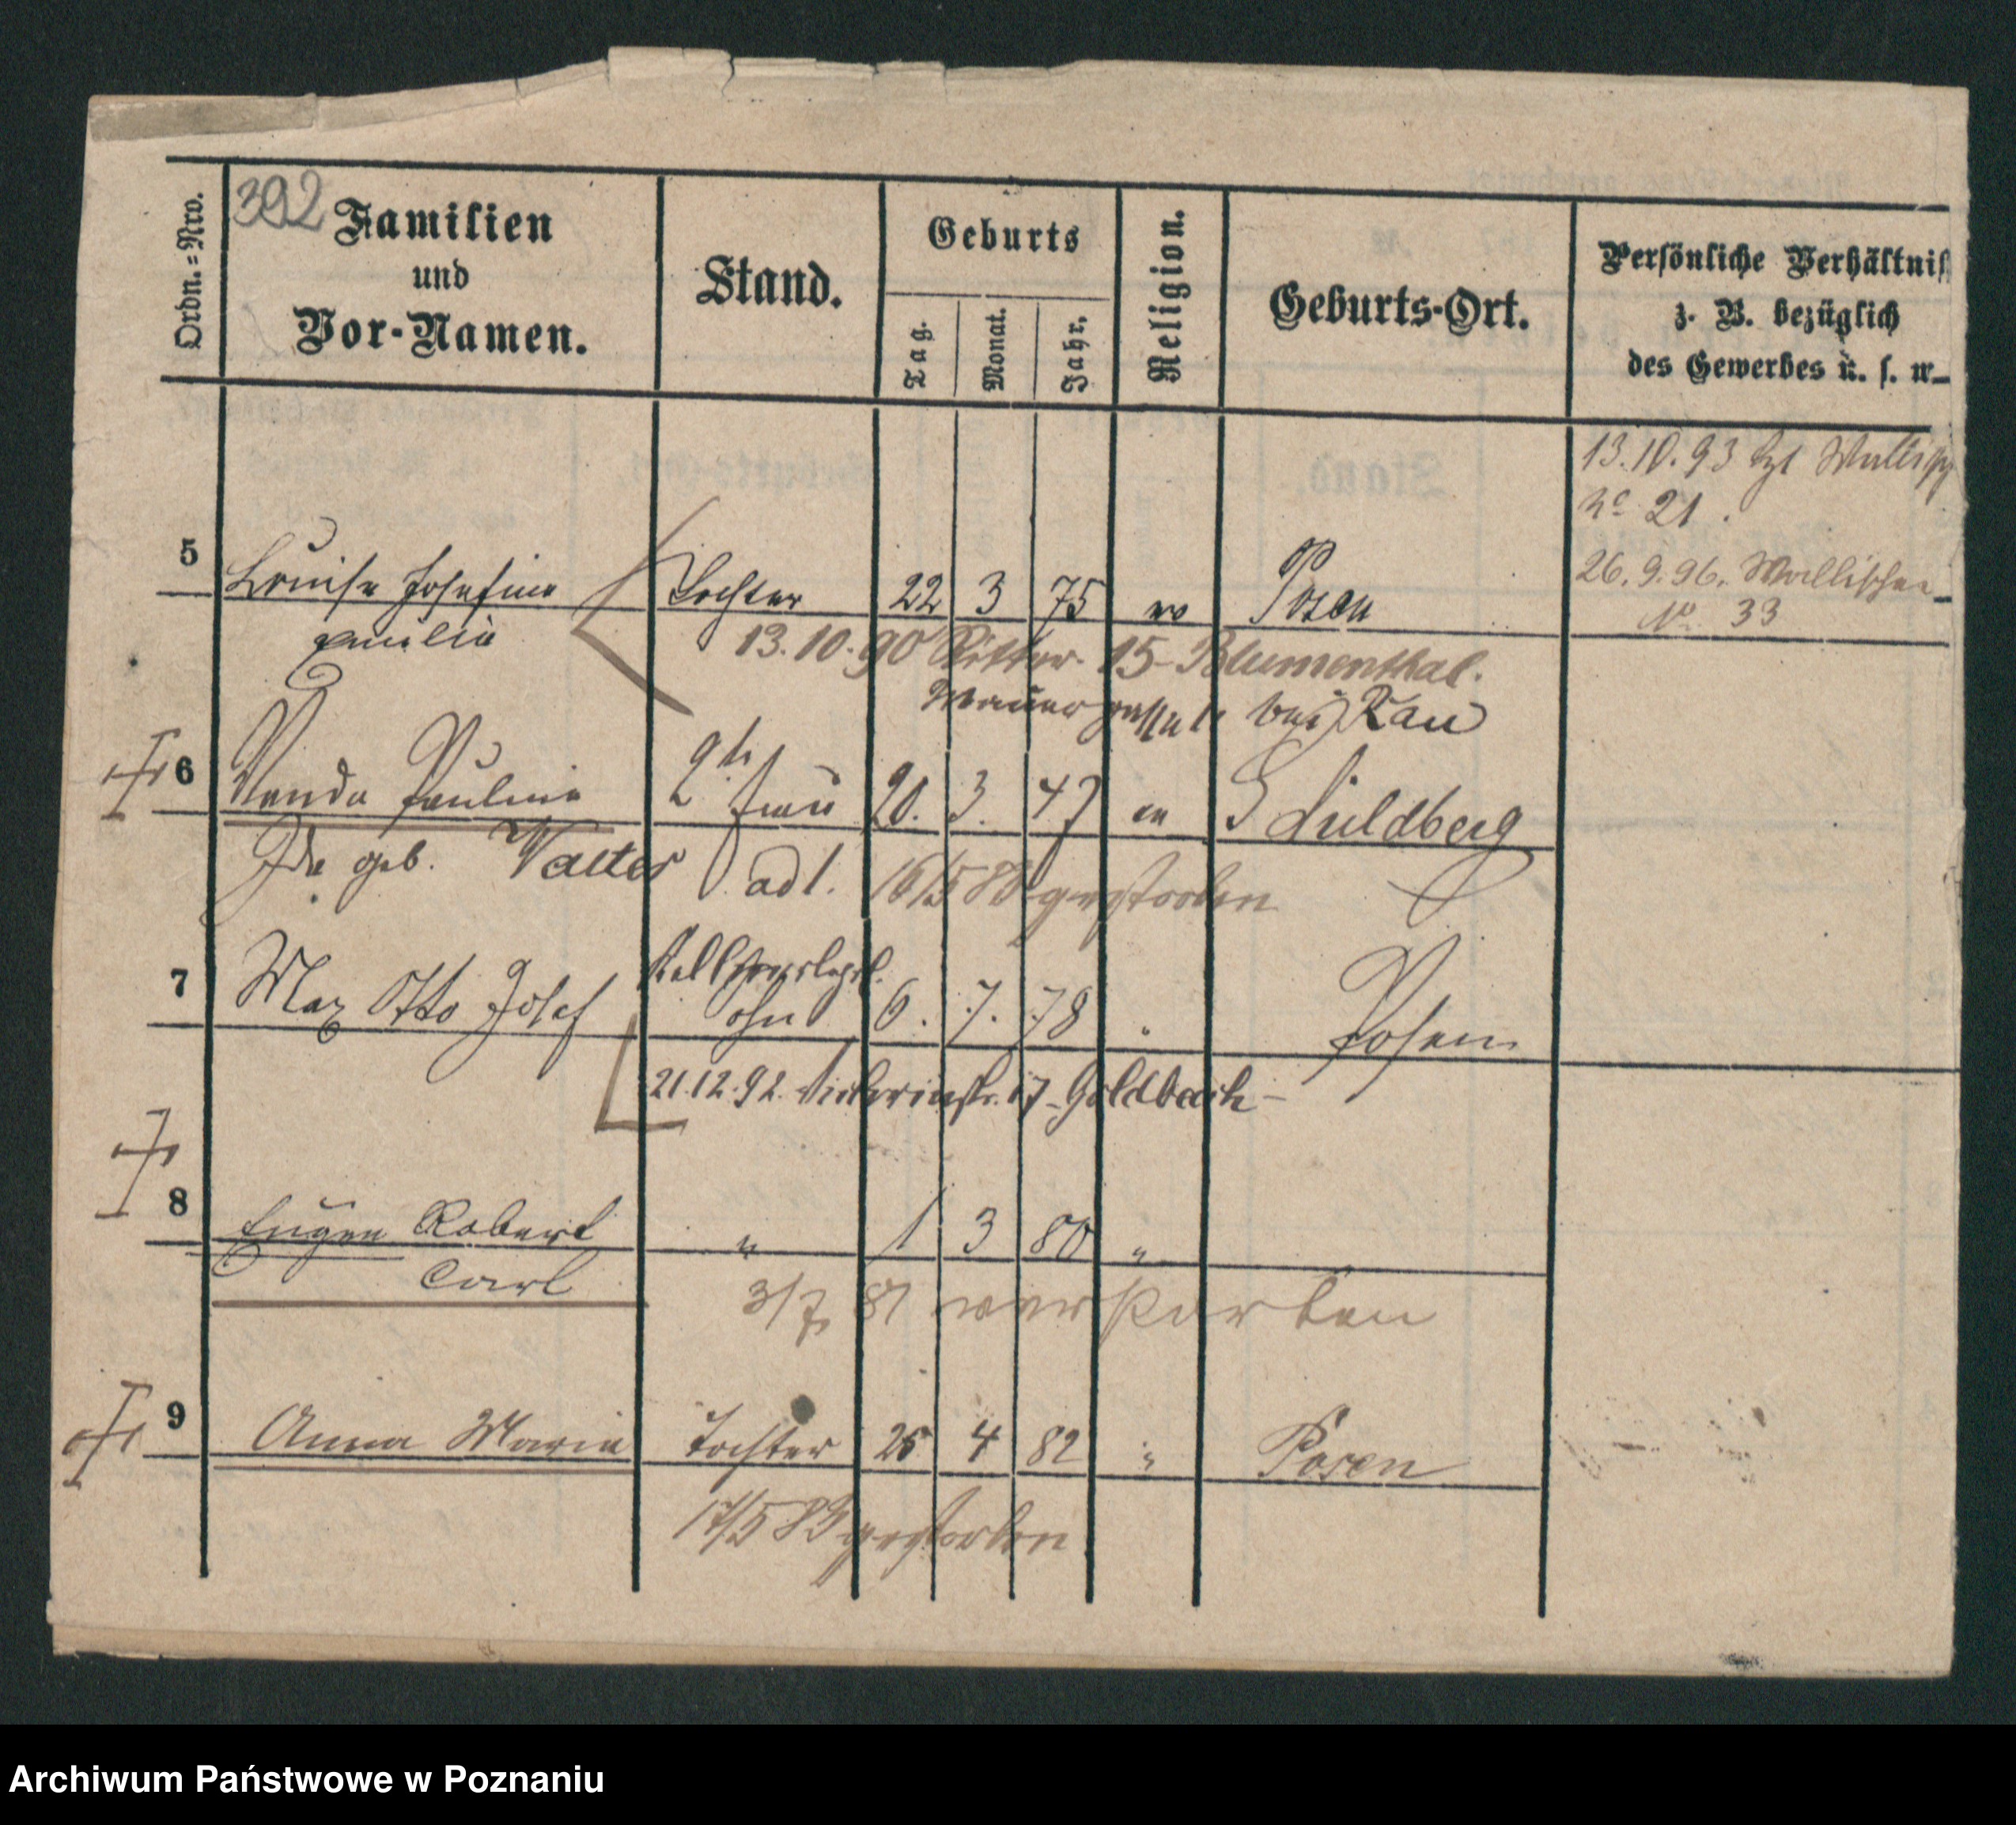 392
Ordn.=Nro.
Familien
und
Vor-Namen.
Stand.
Geburts
Tag.
Monat.
Jahr.
Religion.
Geburts-Ort.
Persönliche Verhältniß
z. B. bezüglich
des Gewerbes u. s. w.
13.10.93
No 21.
26.9.96. Wallischei
No 33
5 Louise Josefine Tochter 22 3 75 Posen
13.10.90 Ritter 15 Blumenthal.
Mauer bei Rau
6 Wanda Pauline Frau 20. 3. 47 Schildberg
Ida geb. Valter 16/5 gestorben
7 Max Otto Josef Sohn 6. 7. 78 " Posen
21.12.92. 17 - Goldbach -
8 Eugen Robert " 1 3 80 "
Carl
3/7 81 verstorben
9 Anna Maria Tochter 25 4 82 " Posen
17/5 83 gestorben
Archiwum Państwowe w Poznaniu